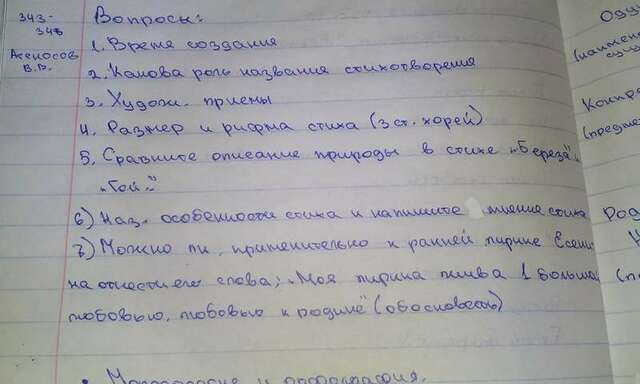 343-
346
Вопросы:
1. Время создания
2. Какова роль названия стихотворения
3. Худож. приемы
4. Размер и рифма стиха (3 ст. хорей)
5. Сравните описание природы в стихе „Береза",
„Гой."
6) Наз. особенности стиха и напишите мнение стиха
7) Можно ли, применительно к ранней лирике Есени
его слова; „Моя лирика жива 1 больша
любовью, любовью к родине" (обосновать)
Оду
Контра
(предме
Род
(п